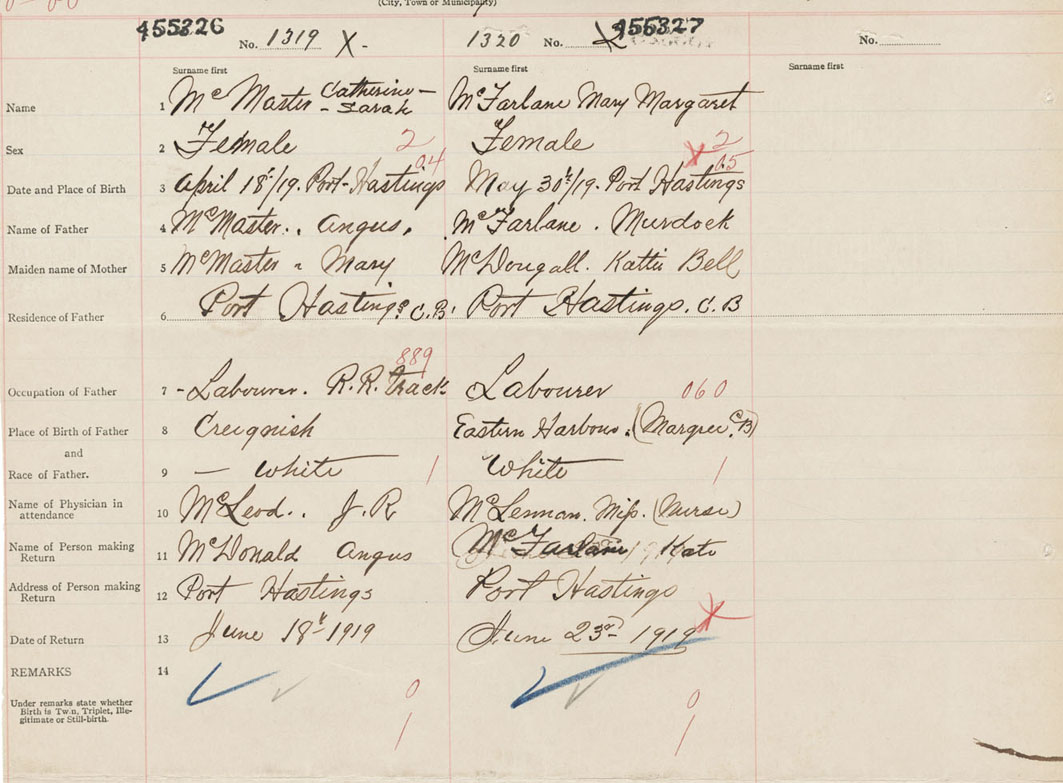 (City, Town or Municipality)
455326 455327
No. 1319 X - 1320 No. X No.
Surname first Surname first Surname first
Name 1 McMaster Catherine - McFarlane Mary Margaret
- Sarah
Sex 2 Female 2 Female 2
04 X 05
Date and Place of Birth 3 April 18th/19. Port-Hastings May 30th/19. Port Hastings
Name of Father 4 McMaster.. Angus. McFarlane. Murdock
Maiden name of Mother 5 McMaster " Mary McDougall. Katti Bell
Residence of Father 6 Port Hastings C.B. Port Hastings. C.B
889
Occupation of Father 7 - Labourer. R.R. Track Labourer 060
Place of Birth of Father 8 Creignish Eastern Harbour. (Margree C.B)
and
Race of Father. 9 — White 1 White 1
Name of Physician in
attendance 10 McLeod.. J.R McLennan. Miss. (Nurse)
Name of Person making
Return 11 McDonald Angus McFarlane Kate
Address of Person making
Return 12 Port Hastings Port Hastings
Date of Return 13 June 18th 1919 June 23rd 1919 X
REMARKS 14
Under remarks state whether
Birth is Twin, Triplet, Ille-
gitimate or Still-birth.
0 0
1 1